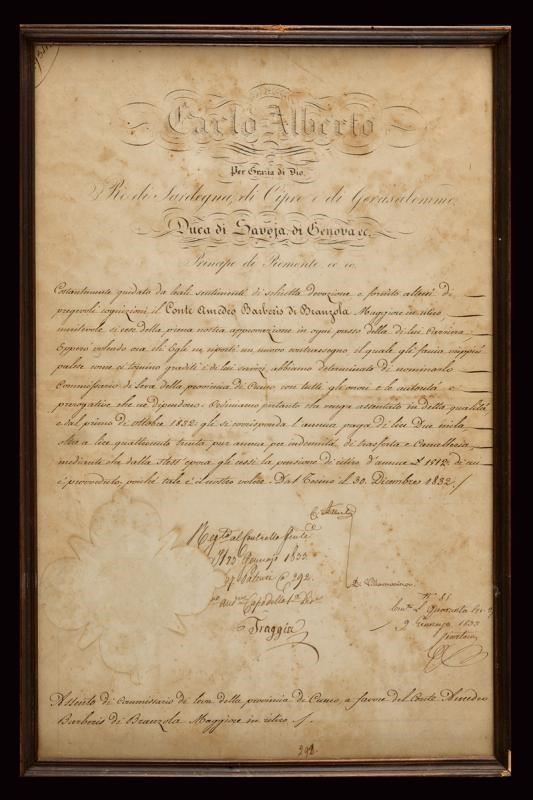 Carlo Alberto
Per Grazia di Dio
Re di Sardegna, di Cipro e di Gerusalemme,
Duca di Savoja, di Genova ec.
Principe di Piemonte ec. ec.
Costantemente guidato da leali sentimenti di schietta devozione, e fornito altresì di
pregevoli cognizioni il Conte Amedeo Barberis di Branzola Maggiore in ritiro
meritevole si rese della piena nostra approvazione in ogni passo della di lui Carriera
Epperò volendo ora che Egli ne riporti un nuovo contrassegno il quale gli faccia
palese come ci tornino graditi i di lui servizi, abbiamo determinato di nominarlo
Commissario di Leva della provincia di Cuneo con tutti gli onori e le autorità e
prerogative che ne dipendono. Ordiniamo pertanto che venga assentato in detta qualità
e dal primo di ottobre 1832 gli si corrisponda l'annua paga di lire Due mila
oltre a lire quattrocento trenta pur annue per indennità di trasferta e Cancelleria
mediante che dalla stess'epoca gli cessi la pensione di ritiro d'annue L 1512 di cui
è provveduto, poichè tale è il nostro volere. Dat. Torino il 30. Dicembre 1832
C. Alberto
al Controllo
Gennajo 1833
292.
Di Villamarina
Capo della
Traggia
N° 88
L Quaranta
9 Gennajo 1833
Assento di Commissario di leva della provincia di Cuneo, a favore del Conte Amedeo
Barberis di Branzola Maggiore in ritiro
292.